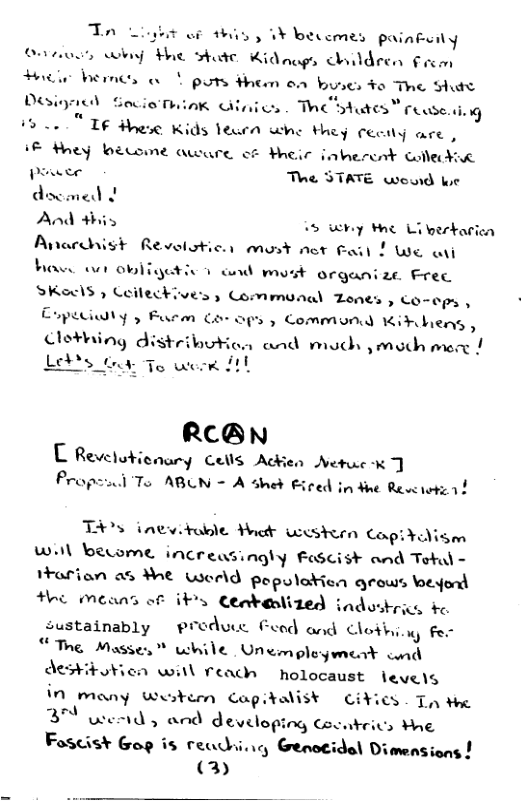 In Light of this, it becomes painfully
obvious why the state Kidnaps children from
their homes a ! puts them on buses to The State
Designed SocioThink clinics. The "States" reasoning
is ... "If these Kids learn who they really are,
if they become aware of their inherent collective
power The STATE would be
doomed!
And this is why the Libertarian
Anarchist Revolution must not Fail! We all
have an obligation and must organize Free
Skools, Collectives, Communal Zones, Co-ops,
Especially, Farm Co-ops, Communal Kitchens,
Clothing distribution and much, much more!
Let's Get To Work!!!
RCⒶN
[Revolutionary Cells Action Network]
Proposal To ABCN - A Shot Fired in the Revolution!
It's inevitable that western Capitalism
will become increasingly Fascist and Total-
itarian as the world population grows beyond
the means of it's centralized industries to
sustainably produce Food and Clothing For
"The Masses" while Unemployment and
destitution will reach holocaust levels
in many western Capitalist Cities. In the
3rd world, and developing Countries the
Fascist Gap is reaching Genocidal Dimensions!
(3)